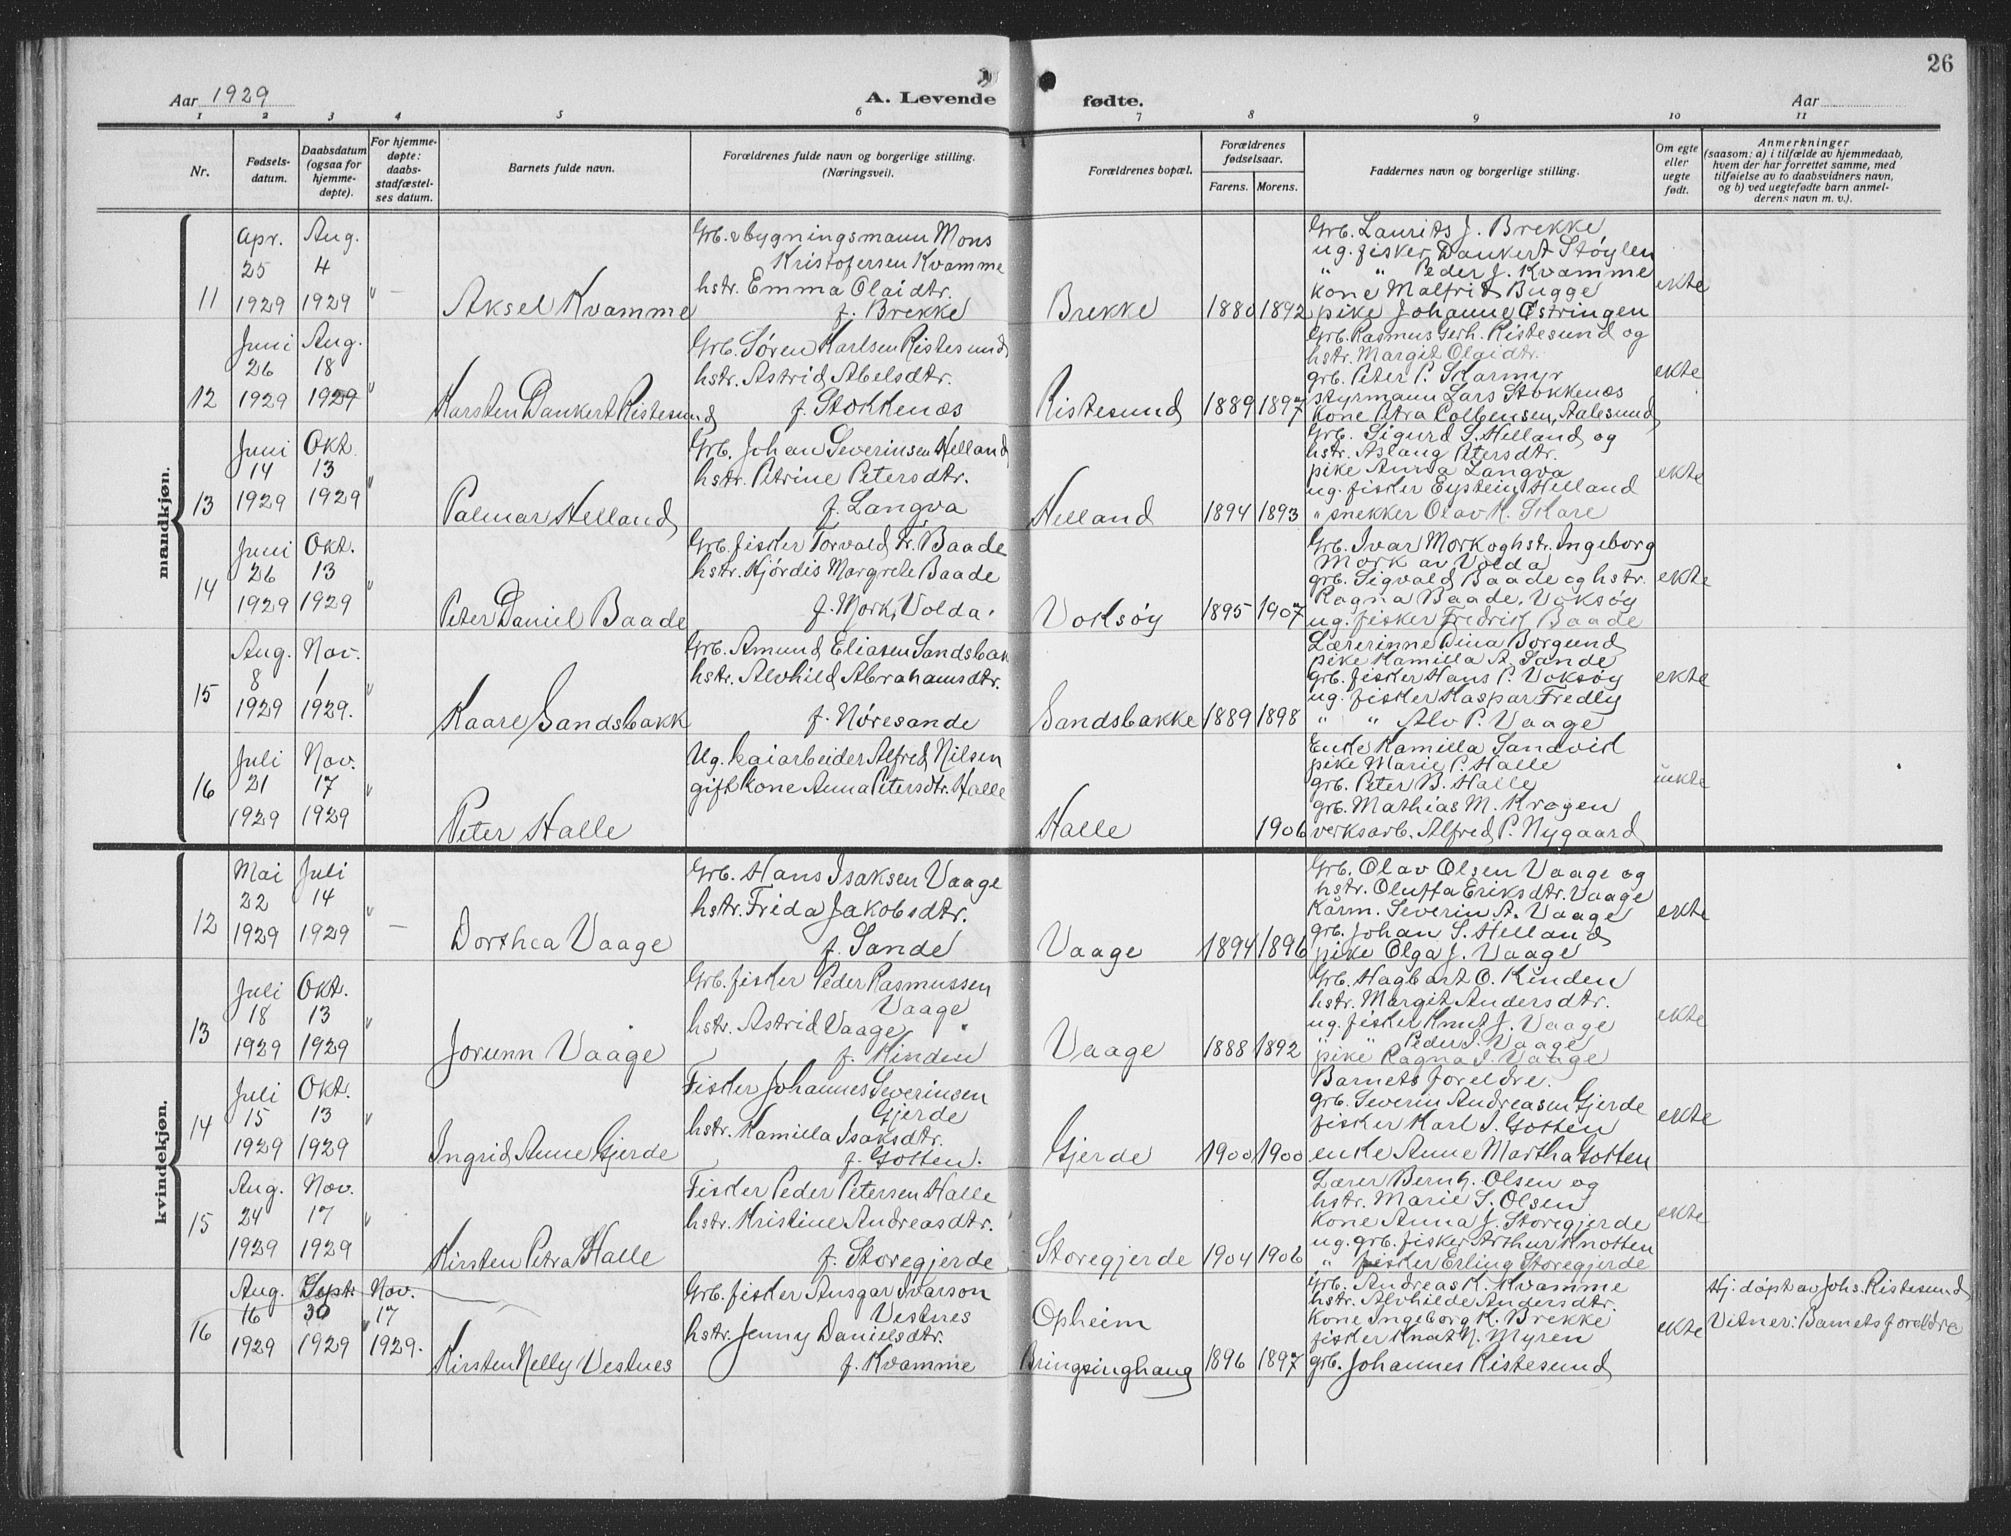 26
Aar 1929
A. Levende fødte.
Aar
1 2 3 4 5 6 7 8 9 10 11
Nr.
Fødsels-
datum.
Daabsdatum
(ogsaa for
hjemme-
døpte).
For hjemme-
døpte:
daabs-
stadfæstel-
ses datum.
Barnets fulde navn.
Forældrenes fulde navn og borgerlige stilling.
(Næringsvei).
Forældrenes bopæl.
Forældrenes
fødselsaar.
Farens. Morens.
Faddernes navn og borgerlige stilling.
Om egte
eller
uegte
født.
Anmerkninger
(saasom: a) i tilfælde av hjemmedaab,
hvem der har forrettet samme, med
tilføielse av to daabsvidners navn,
og b) ved uegtefødte barn anmel-
derens navn m. v.).
mandkjøn.
11
Apr.
25
1929
Aug.
4
1929
Aksel Kvamme
Grb. & bygningsmann Mons
Kristofersen Kvamme
hstr. Emma Olaidtr.
f. Brekke
Brekke
1880 1892
Grb. Laurits J. Brekke
ug. fisker Dankert Støylen
" " Peder J. Kvamme
kone Malfrid Bugge
pike Johanne Østringen
ekte
12
Juni
26
1929
Aug.
18
1929
Karsten Dankert Ristesund
Grb. Søren Karlsen Ristesund
hstr. Astrid Abelsdtr.
f. Stokkenes
Ristesund
1889 1897
Grb. Rasmus Gerh. Ristesund og
hstr. Margit Olaidtr.
grb. Peter P. Skarmyr
styrmann Lars Stokkenes
kone Petra Colbensen, Aalesund
ekte
13
Juni
14
1929
Okt.
13
1929
Palmar Helland
Grb. Johan Severinsen Helland
hstr. Petrine Petersdtr.
f. Langva
Helland
1894 1893
Grb. Sigurd S. Helland og
hstr. Aslaug Petersdtr.
pike Anna Langva
ug. fisker Eystein Helland
" snekker Olav K. Skare
ekte
14
Juni
26
1929
Okt.
13
1929
Peter Daniel Baade
Grb. fisker Torvald Fr. Baade
hstr. Hjördis Margrete Baade
f. Mork, Volda.
Voksøy
1895 1907
Grb. Ivar Mork og hstr. Ingeborg
Mork av Volda
grb. Sigvald Baade og hstr.
Ragna Baade, Voksøy
ug. fisker Fredrik Baade
ekte
15
Aug.
8
1929
Nov.
1
1929.
Kaare Sandsbakk
Grb. Amund Eliasen Sandsbak
hstr. Alvhild Abrahamsdtr.
f. Nøresande
Sandsbakke
1889 1898
Lærerinne Dina Borgund
pike Kamilla A. Sande
grb. fisker Hans P. Voksøy
ug. fisker Kaspar Fredly
" " Alv P. Vaage
ekte
16
Juli
21
1929
Nov.
17
1929
Peter Halle
Ug. kaiarbeider Alfred Nilsen
gift kone Anna Petersdtr. Halle
Halle
1906
Enke Kamilla Sandvik
pike Marie P. Halle
grb. Peter B. Halle
grb. Mathias M. Krogen
verksarb. Alfred P. Nygaard
uekte
kvindekjøn.
12
Mai
22
1929
Juli
14
1929
Dorthea Vaage
Grb. Hans Isaksen Vaage
hstr. Frida Jakobsdtr.
f. Sande
Vaage
1894 1896
Grb. Olav Olsen Vaage og
hstr. Oluffa Eriksdtr. Vaage
Kårm. Severin A. Vaage
grb. Johan S. Helland
pike Olga J. Vaage
ekte
13
Juli
18
1929
Okt.
13
1929
Jorunn Vaage
Grb. fisker Peder Rasmussen
Vaage
hstr. Astrid Vaage
f. Kinden
Vaage
1888 1892
Grb. Hagbart O. Kinden
hstr. Margit Andersdtr.
ug. fisker Knut J. Vaage
" " Peder J. Vaage
pike Ragna J. Vaage
ekte
14
Juli
15
1929
Okt.
13
1929
Ingrid Anne Gjerde
Fisker Johannes Severinsen
Gjerde
hstr. Kamilla Isaksdtr.
f. Gotten.
Gjerde
1900 1900
Barnets foreldre.
grb. Severin Andreasen Gjerde
fisker Karl J. Gotten
enke Anne Martha Gotten
ekte
15
Aug.
24
1929
Nov.
17
1929
Kirsten Petra Halle
Fisker Peder Petersen Halle
hstr. Kristine Andreasdtr.
f. Storegjerde
Storegjerde
1904 1906
Lærer Bernh. Olsen og
hstr. Marie S. Olsen
kone Anna J. Storegjerde
ug. grb. fisker Arthur Knotten
" fisker Erling Storegjerde
ekte
16
Aug.
16
1929
Sept.
30
1929
Nov.
17
1929.
Kirsten Nelly Vestnes
Grb. fisker Ansgar Ivarson
Vestnes
hstr. Jenny Danielsdtr.
f. Kvamme
Opheim
Bringsinghaug
1896 1897
Grb. Andreas K. Kvamme
hstr. Alvhilde Andersdtr.
kone Ingeborg K. Brekke
fisker Knut N. Myren
grb. Johannes Ristesund
ekte
Hj. døpt av Johs. Ristesund
Vitner: Barnets foreldre